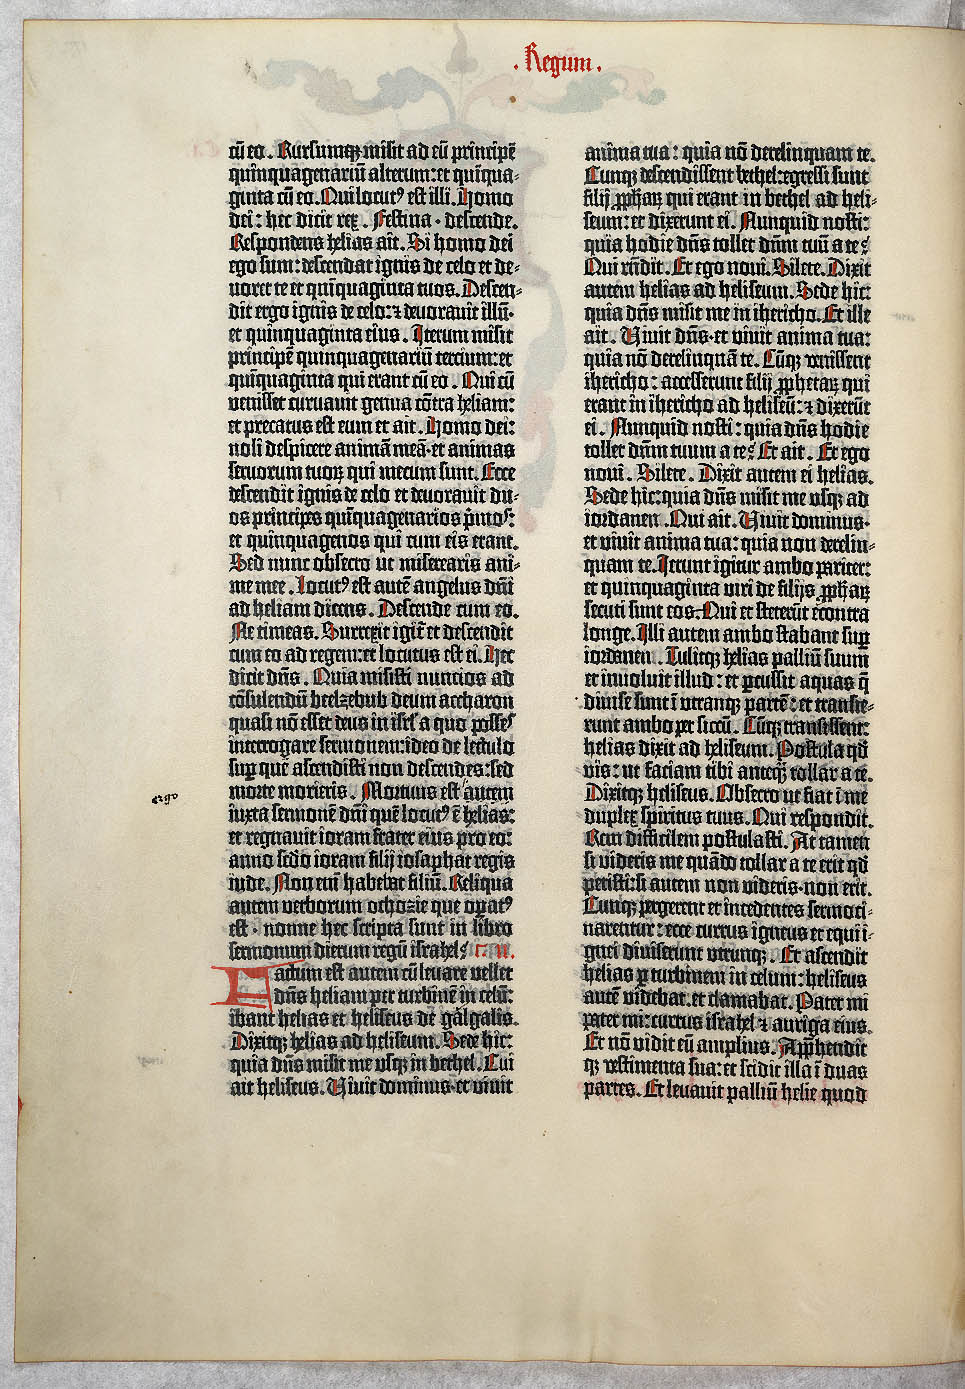 . Regum .
cū eo . Rursumqꝫ misit ad eū principē
quinquagenariū alterum: et quīqua⸗
ginta cū eo . Qui locutꝰ est illi . Homo
dei : hec dicit rex . Festina · descende .
Respondens helias ait . Si homo dei
ego sum : descendat ignis de celo et de⸗
uoret te et quinquaginta tuos . Descen⸗
dit ergo ignis de celo: ⁊ deuorauit illū·
et quinquaginta eius . Iterum misit
principē quinquagenariū tercium: et
quīquaginta qui erant cū eo . Qui cū
venisset curuauit genua cōtra heliam:
et precatus est eum et ait . Homo dei:
noli despicere animā meā· et animas
seruorum tuoꝝ qui mecum sunt . Ecce
descendit ignis de celo et deuorauit du⸗
os principes quīquagenarios p̄mos:
et quinquagenos qui cum eis erant .
Sed nunc obsecro ut miserearis ani⸗
me mee . Locutꝰ est autē angelus dn̄i
ad heliam dicens . Descende cum eo .
Ne timeas . Surrexit igit̄ et descendit
cum eo ad regem: et locutus est ei . Hec
dicit dn̄s . Quia misisti nuncios ad
cōsulendū beelzebub deum accharon
quasi nō esset deus in isr̄l a quo posses
interrogare sermonem: ideo de lectulo
suꝑ quē ascendisti non descendes: sed
morte morieris . Mortuus est autem
ergo
iuxta sermonē dn̄i quē locutꝰ ē helias:
et regnauit ioram frater eius pro eo:
anno scd̄o ioram filij iosaphat regis
iude . Non em̄ habebat filiū . Reliqua
autem verborum ochozie que oꝑatꝰ
est · nonne hec scripta sunt in libro
sermonum dierum regū israhel? c. II.
Factum est autem cū leuare vellet
dn̄s heliam per turbinē in celū:
ibant helias et heliseus de galgalis .
Dixitqꝫ helias ad heliseum . Sede hic:
quia dn̄s misit me usqꝫ in bethel . Cui
ait heliseus . Viuit dominus · et viuit
anima tua : quia nō derelinquam te .
Cunqꝫ descendissent bethel: egressi sunt
filij ꝓphetaꝝ qui erant in bethel ad heli⸗
seum: et dixerunt ei . Nunquid nosti:
quia hodie dn̄s tollet dn̄m tuū a te?
Qui rn̄dit . Et ego noui . Silete . Dixit
autem helias ad heliseum . Sede hic:
quia dn̄s misit me in ihericho . Et ille
ait . Viuit dn̄s · et viuit anima tua:
quia nō derelinquā te . Cūqꝫ venissent
ihericho : accesserunt filij ꝓphetaꝝ qui
erant in ihericho ad heliseū: ⁊ dixerūt
ei . Nunquid nosti : quia dn̄s hodie
tollet dn̄m tuum a te? Et ait . Et ego
noui . Silete . Dixit autem ei helias .
Sede hic: quia dn̄s misit me usqꝫ ad
iordanen . Qui ait . Viuit dominus ·
et viuit anima tua: quia non derelin⸗
quam te . Ierunt igitur ambo pariter:
et quinquaginta viri de filijs ꝓphetaꝝ
secuti sunt eos · Qui et steterūt econtra
longe . Illi autem ambo stabant suꝑ
iordanen . Tulitqꝫ helias palliū suum
et inuoluit illud : et ꝑcussit aquas q̄
diuise sunt ī utranqꝫ partē : et transie⸗
runt ambo per siccū . Cūqꝫ transissent:
helias dixit ad heliseum . Postula qd̄
vis : ut faciam tibi anteqꝫ tollar a te .
Dixitqꝫ heliseus . Obsecro ut fiat ī me
duplex spiritus tuus . Qui respondit .
Rem difficilem postulasti . Attamen
si videris me quādo tollar a te erit qd̄
petisti: si autem non videris · non erit .
Cunqꝫ pergerent et īcedentes sermoci⸗
narentur : ecce currus igneus et equi i⸗
gnei diuiserunt utrunqꝫ . Et ascendit
helias ꝑ turbinem in celum: heliseus
autē videbat . et clamabat . Pater mi
pater mi: currus israhel ⁊ auriga eius .
Et nō vidit eū amplius . Apꝑhendit
qꝫ vestimenta sua: et scidit illa ī duas
partes . Et leuauit palliū helie quod